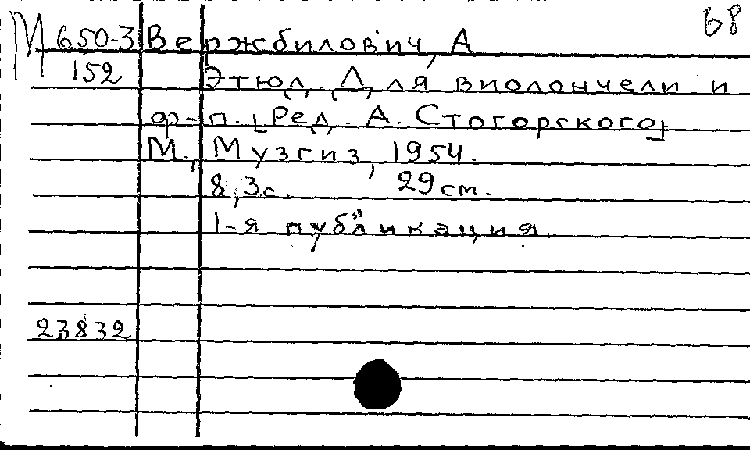 68
М 650-3 Вержбилович, А
152 Этюд. Для виолончели и
ф-п. [Ред. А. Стогорского]
М., Музгиз, 1954.
8,3с. 29см.
1-я публикация
23832